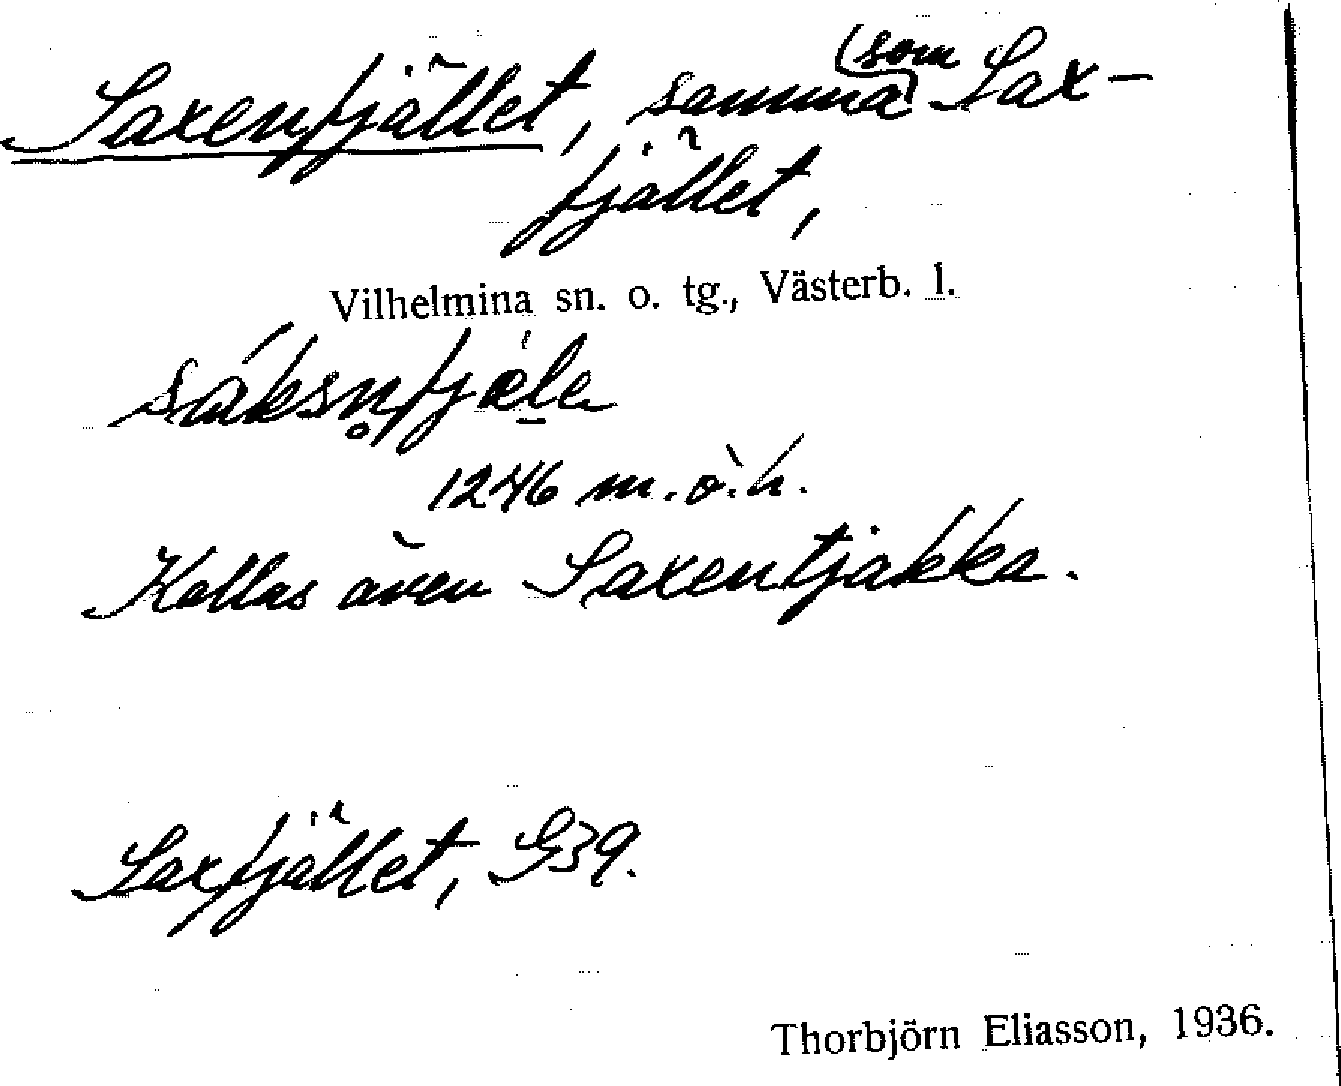 Saxenfjället, samma som Sax-
fjället,
Vilhelmina sn. o. tg., Västerb. l.
sáksn̥fjæ̀le
1246 m.ö.h.
Kallas även Saxentjakka.
Saxfjället, G39.
Thorbjörn Eliasson, 1936.